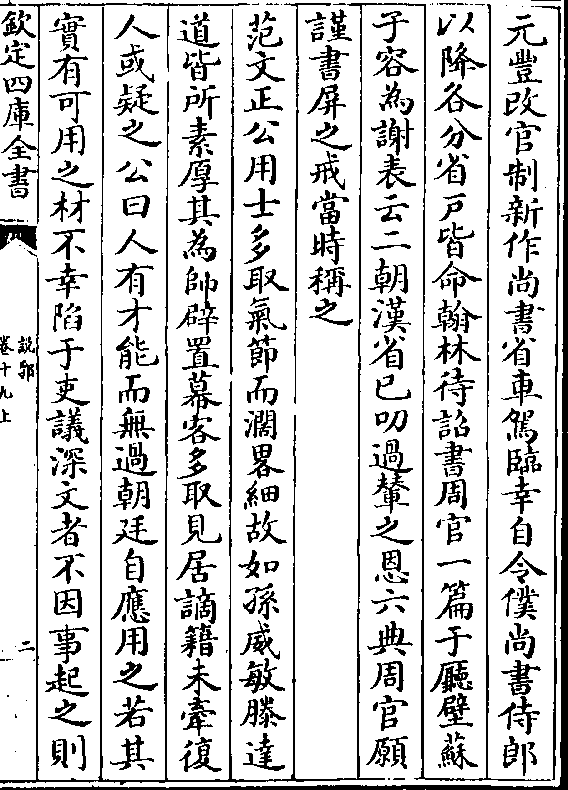 元豐改官制新作尚書省車駕臨幸自令僕尚書侍郎
以降各分省戸皆命翰林待詔書周官一篇于廳壁蘇
子容為謝表云二朝漢省已叨過輦之恩六典周官願
謹書屏之戒當時稱之
范文正公用士多取氣節而濶畧細故如孫威敏滕達
道皆所素厚其為帥辟置幕客多取見居謫籍未牽復
人或疑之公曰人有才能而無過朝廷自應用之若其
實有可用之材不幸陷于吏議深文者不因事起之則
欽定四庫全書
說郛
卷十九上
二